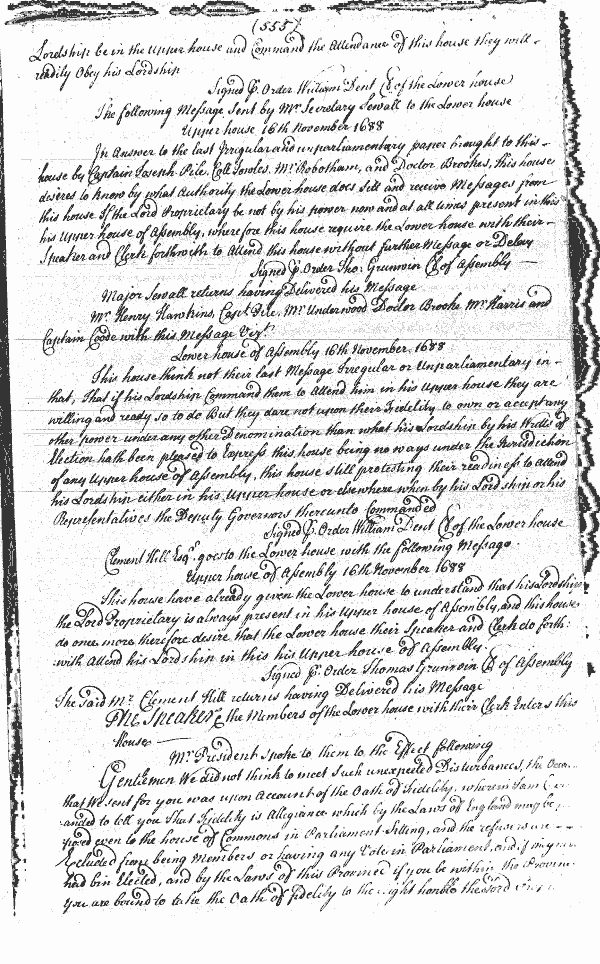 (555)
Lordship be in the Upper house and Command the Attendance of this house they will
readily Obey his Lordship
Signed P. Order William Dent Cl of the Lower house
The following Message Sent by Mr. Secretary Sewall to the Lower house
Upper house 16th November 1688
In Answer to the last Irregular and unparliamentary paper brought to this
house by Captain Joseph Pile, Coll Jowles, Mr. Robotham, and Doctor Brookes, this house
desires to know by what Authority the Lower house does Sitt and receive Messages from
this house If the Lord Proprietary be not by his power now and at all times present in this
his Upper house of Assembly, wherefore this house require the Lower house with their
Speaker and Clerk forthwith to Attend this house without further Message or Delay
Signed P. Order Tho: Grunwin Cl of Assembly
Major Sewall returns having Delivered his Message
Mr. Henry Hawkins, Capt. Pile, Mr. Underwood Doctor Brooke Mr. Harris and
Captain Coode with this Message Vizt.
Lower house of Assembly 16th November 1688
This house think not their last Message Irregular or Unparliamentary in
that, That if his Lordship Command them to Attend him in his Upper house they are
willing and ready so to do But they dare not upon their Fidelity to own or accept any
other power under any other Denomination than what his Lordship by his Writts of
Election hath been pleased to Express this house being no ways under the Jurisdiction
of any Upper house of Assembly, this house still protesting their readiness to Attend
his Lordship either in his Upper house or elsewhere when by his Lordship or his
Representatives the Deputy Governors thereunto Commanded
Signed P. Order William Dent Cl of the Lower house
Clement Hill Esqr. goes to the Lower house with the following Message
Upper house of Assembly 16th November 1688
This house have already given the Lower house to understand that his Lordship
the Lord Proprietary is always present in his Upper house of Assembly, and this house
do once more therefore desire that the Lower house their Speaker and Clerk do forth:
with Attend his Lordship in this his Upper house of Assembly.
Signed P. Order Thomas Grunwin Cl of Assembly
The Said Mr. Clement Hill returns having Delivered his Message
The Speaker & the Members of the Lower house with their Clerk Enters this
House
Mr. President spoke to them to the Effect following
Gentlemen We did not think to meet Such unexpected Disturbances, the
that We sent for you was upon Account of the Oath of Fidelity, wherein I am
anded to tell you That Fidelity is Allegiance which by the Laws of England may be
posed even to the house of Commons in Parliament Sitting, and the refusers
Excluded from being Members or having any Vote in Parliament, and if any
had bin Elected, and by the Laws of this Province if you be within the
You are bound to take the Oath of fidelity to the Right honble the Lord